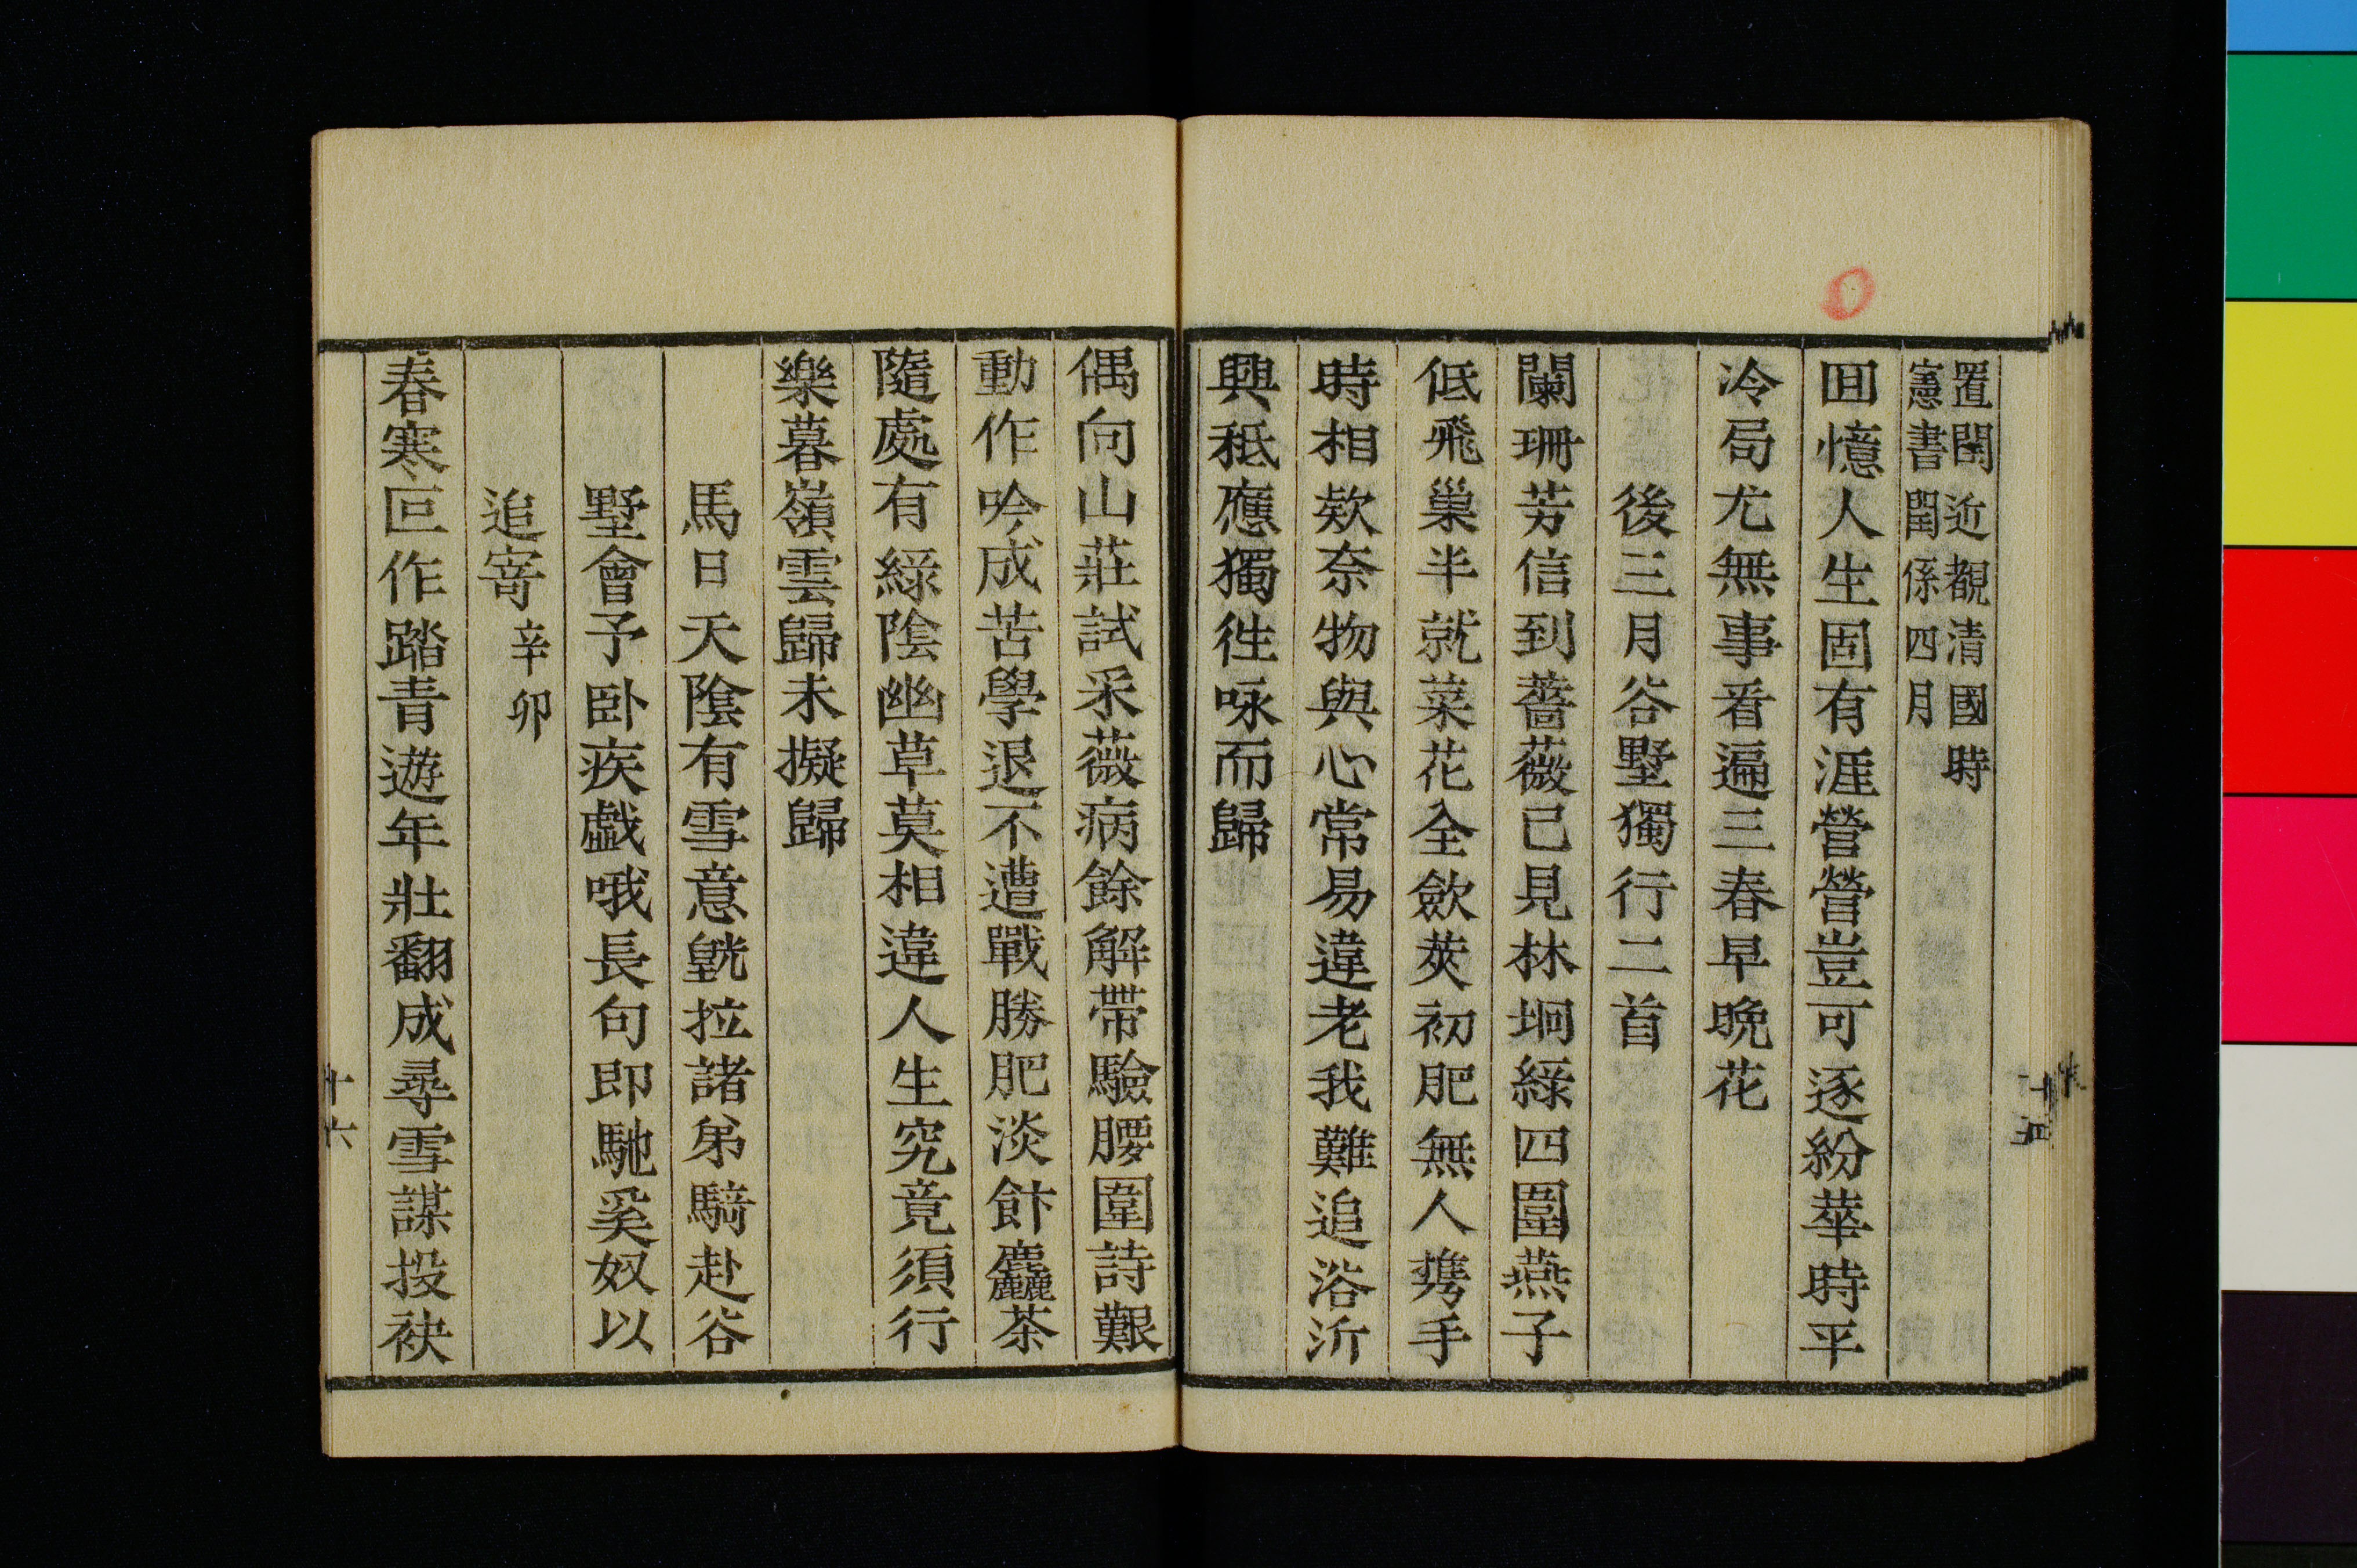 置閏近覩清國時
憲書閏係四月
回憶人生固有涯營營豈可逐紛華時平
冷局尤無事看遍三春早晩花
後三月谷墅獨行二首
闌珊芳信到薔薇已見林坰綠四圍燕子
低飛巢半就菜花全歛莢初肥無人攜手
時相欵奈物與心常易違老我難追浴沂
興秖應獨徃咏而歸
偶向山莊試采薇病餘解帶驗腰圍詩艱
動作吟成苦學退不遭戰勝肥淡飰麤茶
隨處有綠陰幽草莫相違人生究竟須行
樂暮嶺雲歸未擬歸
馬日天陰有雪意皝拉諸弟騎赴谷
墅會予卧疾戯哦長句即馳奚奴以
追寄辛卯
春寒叵作踏青遊年壯翻成尋雪謀投袂
十六